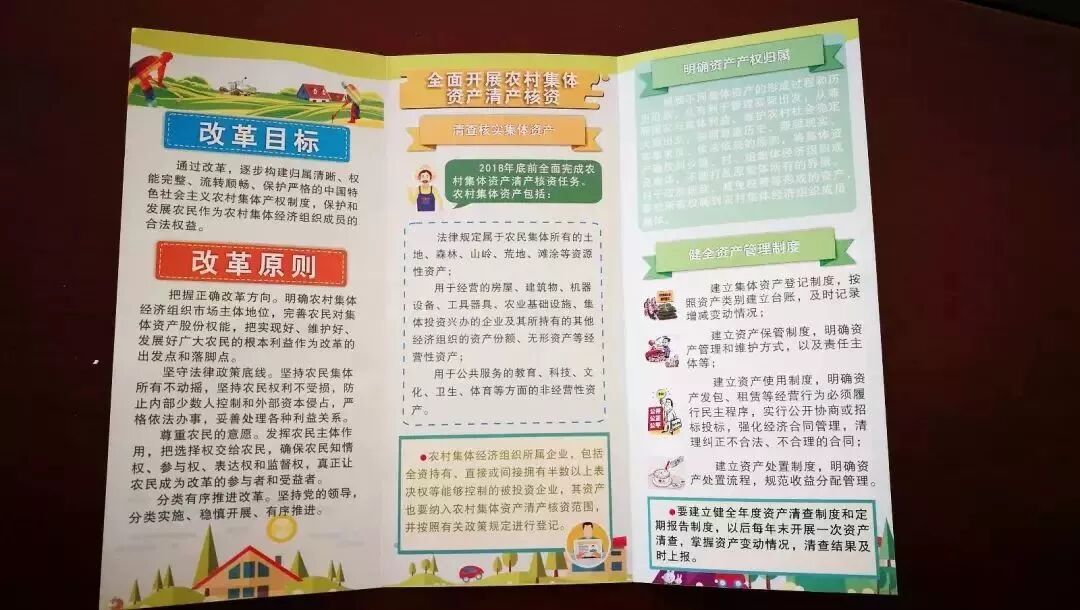 改革目标
通过改革，逐步构建归属清晰、权
能完整、流转顺畅、保护严格的中国特
色社会主义农村集体产权制度，保护和
发展农民作为农村集体经济组织成员的
合法权益。
改革原则
把握正确改革方向。明确农村集体
经济组织市场主体地位，完善农民对集
体资产股份权能，把实现好、维护好、
发展好广大农民的根本利益作为改革的
出发点和落脚点。
坚守法律政策底线。坚持农民集体
所有不动摇，坚持农民权利不受损，防
止内部少数人控制和外部资本侵占，严
格依法办事，妥善处理各种利益关系。
尊重农民的意愿。发挥农民主体作
用，把选择权交给农民，确保农民知情
权、参与权、表达权和监督权，真正让
农民成为改革的参与者和受益者。
分类有序推进改革。坚持党的领导，
分类实施、稳慎开展、有序推进。
全面开展农村集体
资产清产核资
清查核实集体资产
2018年底前全面完成农
村集体资产清产核资任务。
农村集体资产包括：
法律规定属于农民集体所有的土
地、森林、山岭、荒地、滩涂等资源
性资产；
用于经营的房屋、建筑物、机器
设备、工具器具、农业基础设施、集
体投资兴办的企业及其所持有的其他
经济组织的资产份额、无形资产等经
营性资产；
用于公共服务的教育、科技、文
化、卫生、体育等方面的非经营性资
产。
●农村集体经济组织所属企业，包括
全资持有、直接或间接拥有半数以上表
决权等能够控制的被投资企业，其资产
也要纳入农村集体资产清产核资范围，
并按照有关政策规定进行登记。
明确资产产权归属
根据不同集体资产的形成过程和历
健全资产管理制度
建立集体资产登记制度，按
照资产类别建立台账，及时记录
增减变动情况；
建立资产保管制度，明确资
产管理和维护方式，以及责任主
体等；
建立资产使用制度，明确资
产发包、租赁等经营行为必须履
行民主程序，实行公开协商或招
标投标，强化经济合同管理，清
理纠正不合法、不合理的合同；
建立资产处置制度，明确资
产处置流程，规范收益分配管理。
●要建立健全年度资产清查制度和定
期报告制度，以后每年末开展一次资产
清查，掌握资产变动情况，清查结果及
时上报。